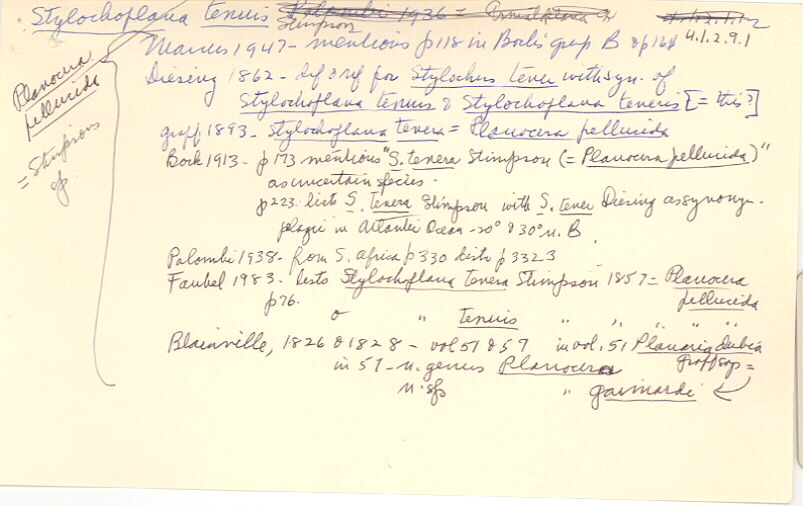 Stylochoplana tenuis Palombi 1936 =
Stimpson
4.1.2.9.1
Marcus 1947 - mentions p118 in Bock's group B op 124
Diesing 1862 - def & ref for Stylochus tener with syn. of
Stylochoplana tenuis & Stylochoplana teneris [= this?]
Planocera
pellucida
= Stimpsons
sp.
graff 1893 - Stylochoplana tenera = Planocera pellucida
Bock 1913 - p173 mentions "S. tenera Stimpson (= Planocera pellucida)"
as uncertain species.
p223 lists S. tenera Stimpson with S. tener Diesing as synonym.
plagic in Atlantic Ocean - 20° & 30° N. B
Palombi 1938 - from S. africa p330 dists p332 3
Faubel 1983 - lists Stylochoplana tenera Stimpson 1857 = Planocera
p76. pellucida
or " tenuis " " " "
Blainville, 1826 & 1828 - vol 51 & 57 in vol. 51 Planaria dubia
in 57 - n. genus Planocera graff says =
n. sp " gaimardi